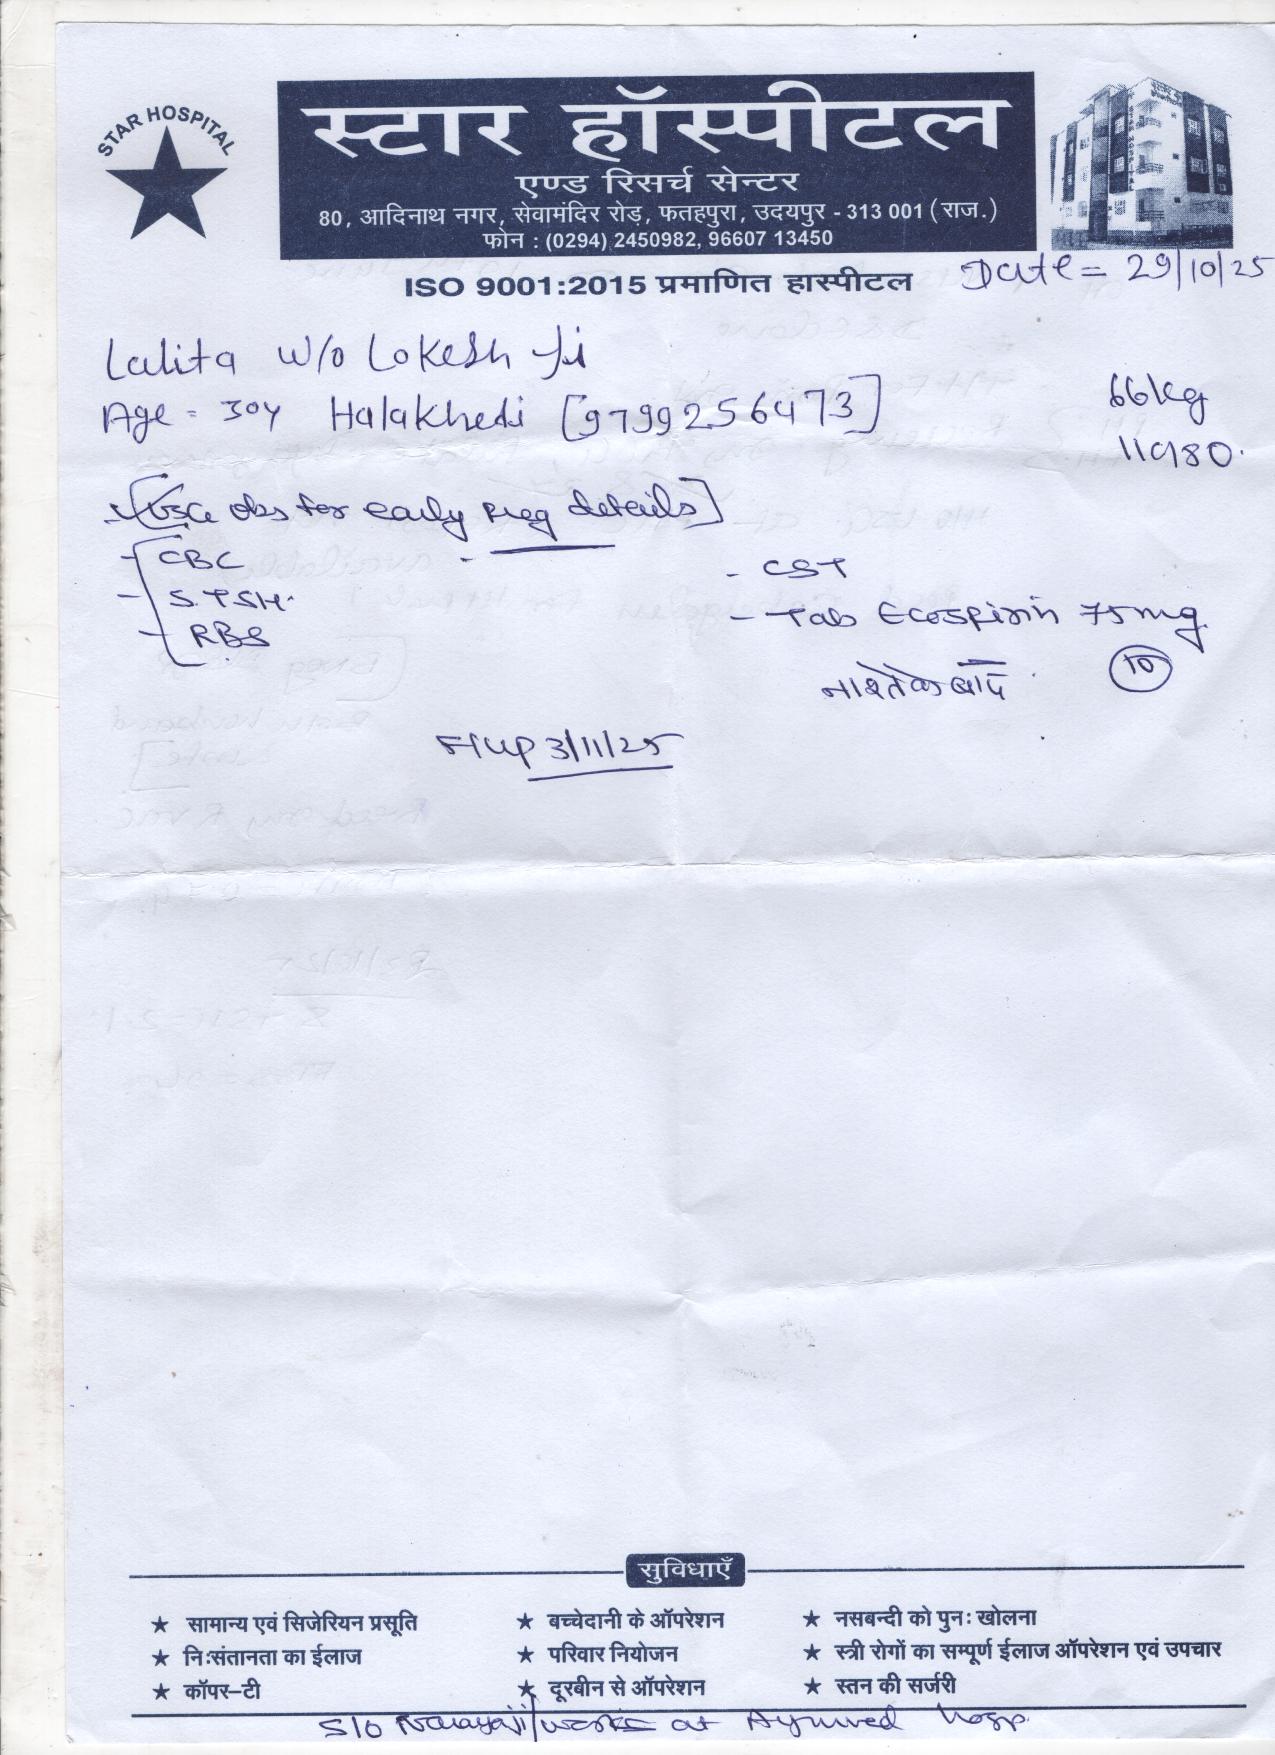 STAR HOSPITAL
स्टार हॉस्पीटल
एण्ड रिसर्च सेन्टर
80, आदिनाथ नगर, सेवामंदिर रोड़, फतहपुरा, उदयपुर - 313 001 (राज.)
फोन : (0294) 2450982, 96607 13450
ISO 9001:2015 प्रमाणित हास्पीटल
Date = 29/10/25
Lalita W/o Lokesh Ji
Age = 30y Halakhedi [9799256473]
66kg
110/80.
[USG obs for early preg details]
- CBC
- S. TSH.
- RBS
- CST
- Tab Ecospirin 75mg
नाश्ते के बाद 10
F/up 3/11/25
सुविधाएँ
★ सामान्य एवं सिजेरियन प्रसूति ★ बच्चेदानी के ऑपरेशन ★ नसबन्दी को पुनः खोलना
★ निःसंतानता का ईलाज ★ परिवार नियोजन ★ स्त्री रोगों का सम्पूर्ण ईलाज ऑपरेशन एवं उपचार
★ कॉपर-टी ★ दूरबीन से ऑपरेशन ★ स्तन की सर्जरी
S/o Narayaji/works at Ayurved hosp.